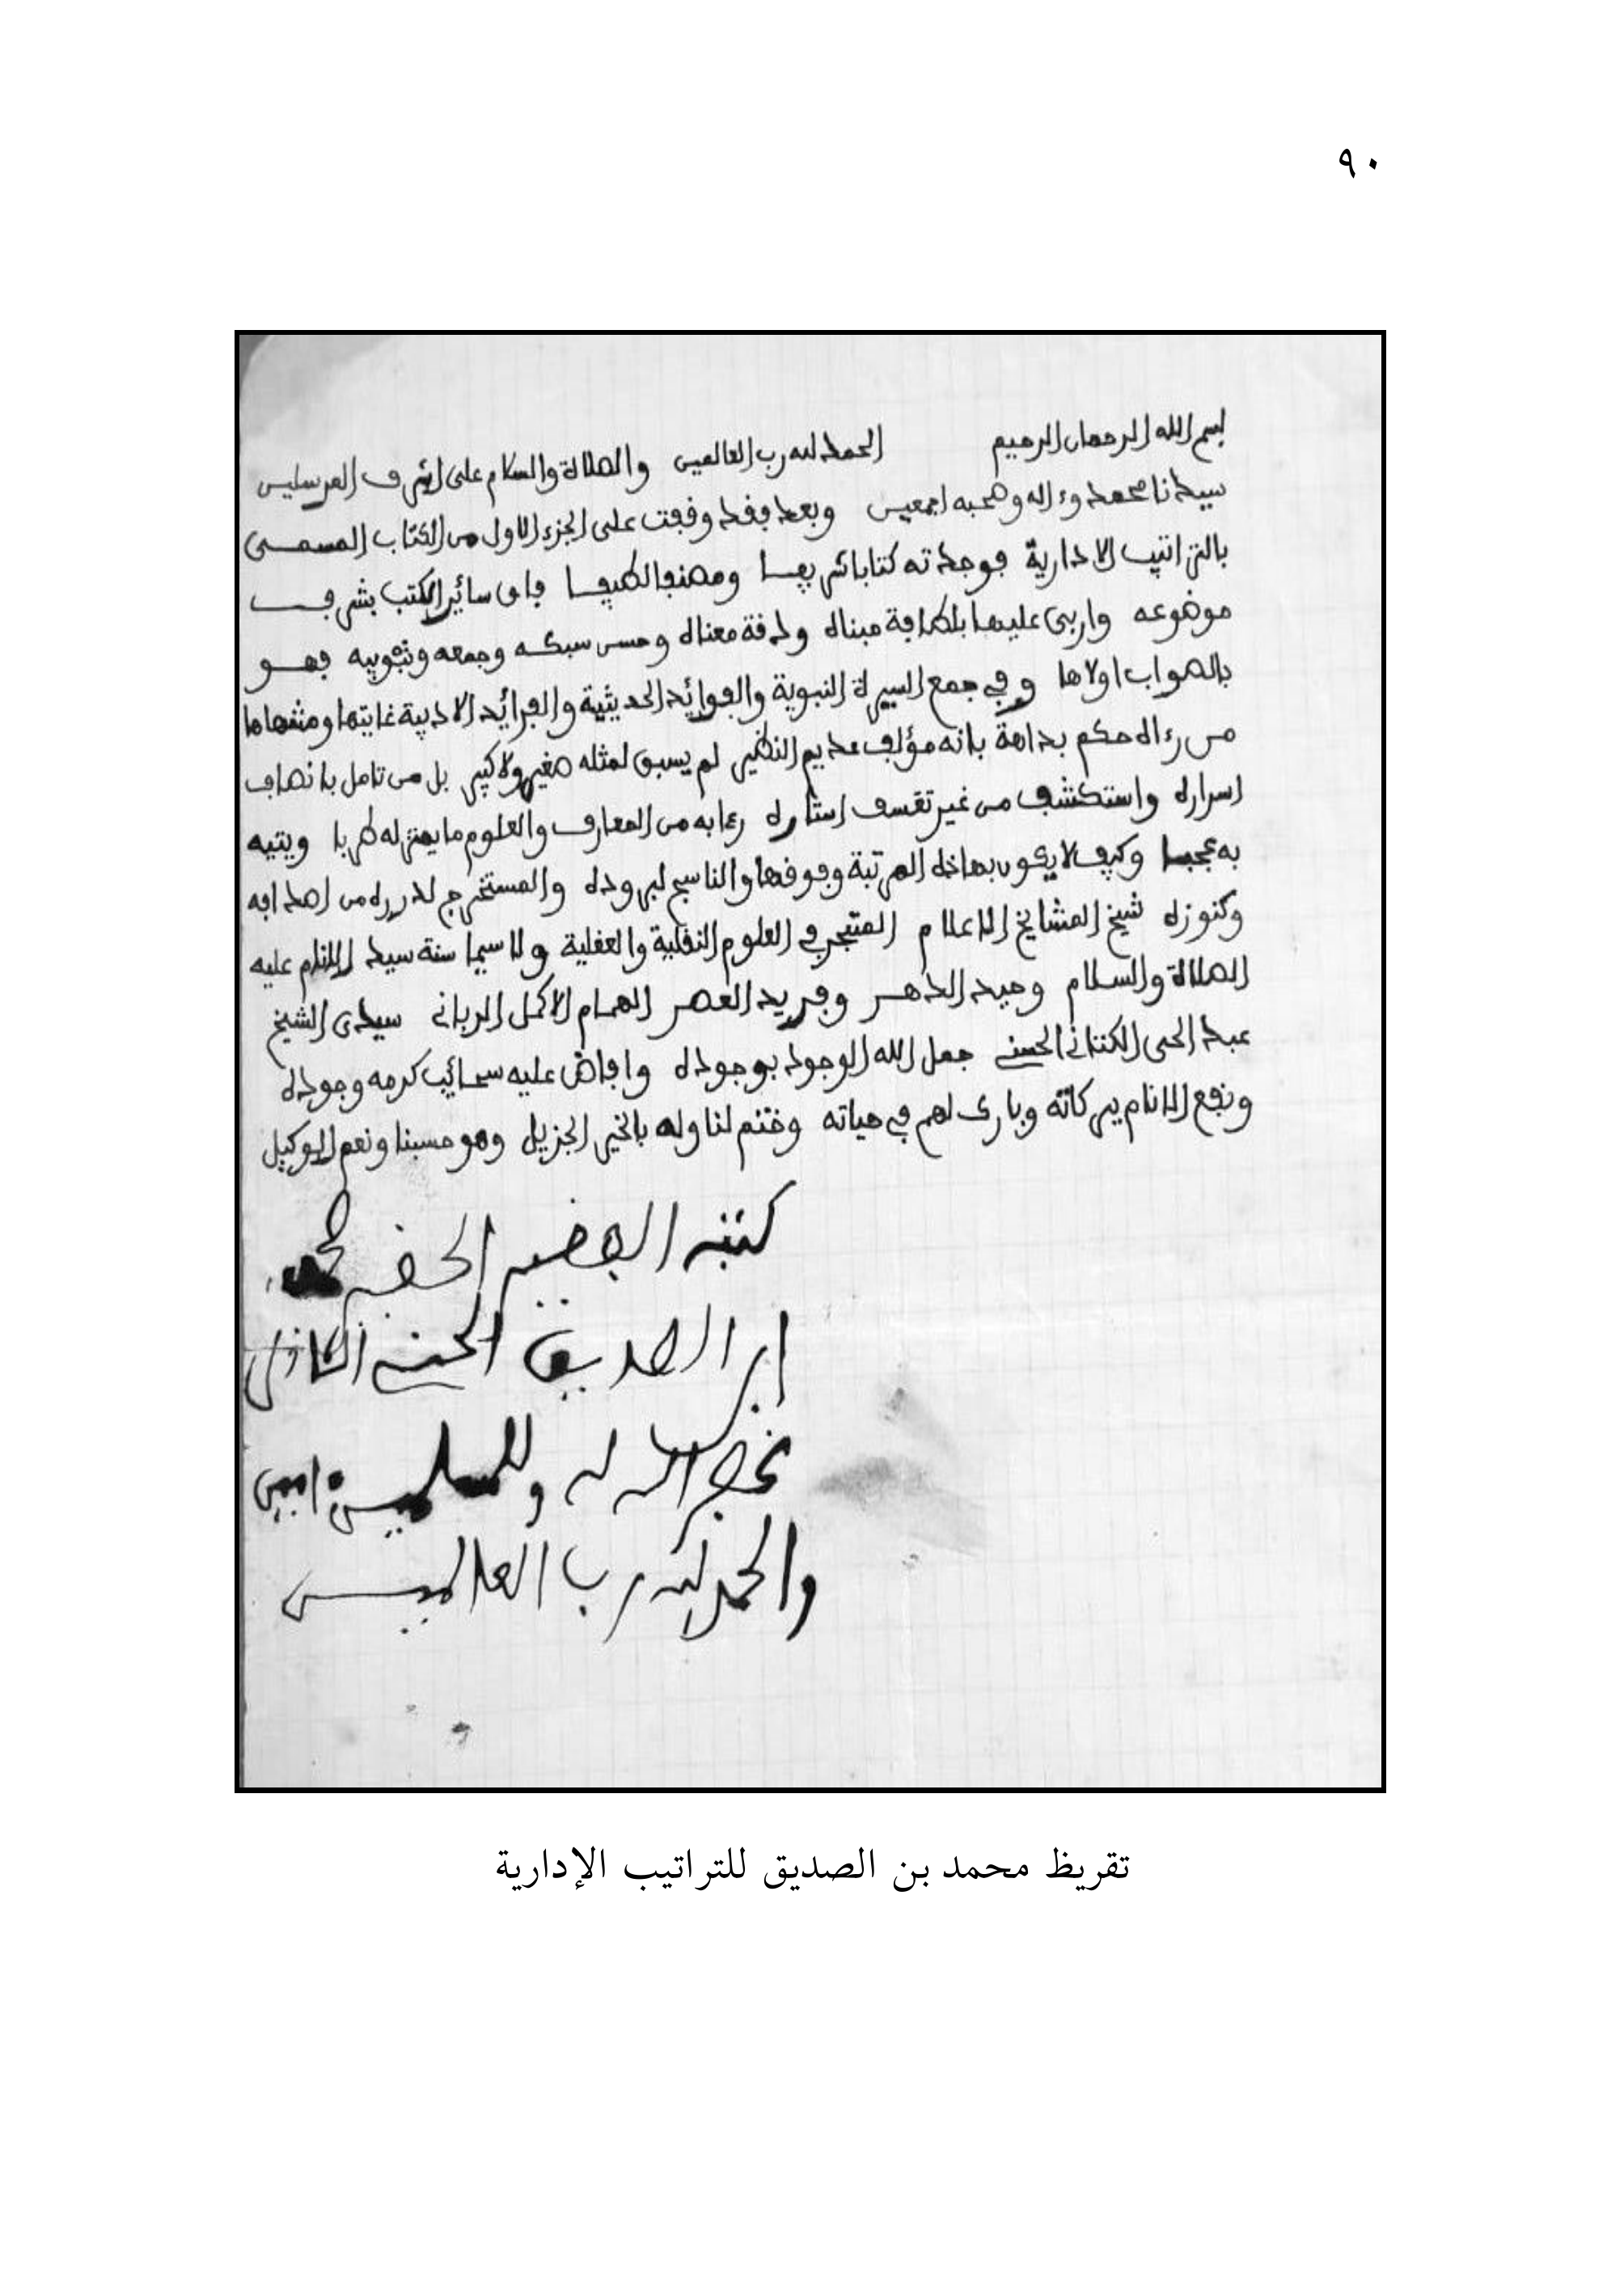 ٩٠
بسم الله الرحمان الرحيم الحمد لله رب العالمين والصلاة والسلام على أشرف المرسلين
سيدنا محمد وءاله وصحبه اجمعين وبعد فقد وقفت على الجزء الاول من الكتاب المسمى
بالتراتيب الادارية فوجدته كتابا شريفا ومصنفا لطيفا فاق سائر الكتب بشرف
موضوعه واربى عليها بلطافة مبناه ودقة معناه وحسن سبكه وجمعه وتبويبه فهو
بالصواب اولاها وفي جمع السيرة النبوية والفوائد الحديثية والفرائد الادبية غايتها ومنتهاها
من رءاه حكم بداهة بانه مؤلف عديم النظير لم يسبق لمثله صغير ولا كبير بل من تامل بانصاف
اسراره واستكشف من غير تعسف استاره رءا به من المعارف والعلوم ما يهتز له طربا ويتيه
به عجبا وكيف لا يكون بهاذه المرتبة وفوقها والناسج لبروده والمستخرج لدرره من اصدافه
وكنوزه شيخ المشايخ الاعلام المتبحر في العلوم النقلية والعقلية ولا سيما سنة سيد الانام عليه
الصلاة والسلام وحيد الدهر وفريد العصر الهمام الاكمل الرباني سيدي الشيخ
عبد الحي الكتاني الحسني جمل الله الوجود بوجوده وافاض عليه سحائب كرمه وجوده
ونفع الانام ببركاته وبارك لهم في حياته وختم لنا وله بالخير الجزيل وهو حسبنا ونعم الوكيل
كتبه الفقير الحقير محمد
ابن الصديق الحسني
غفر الله له وللمسلمين ءامين
والحمد لله رب العالمين
تقريظ محمد بن الصديق للتراتيب الإدارية